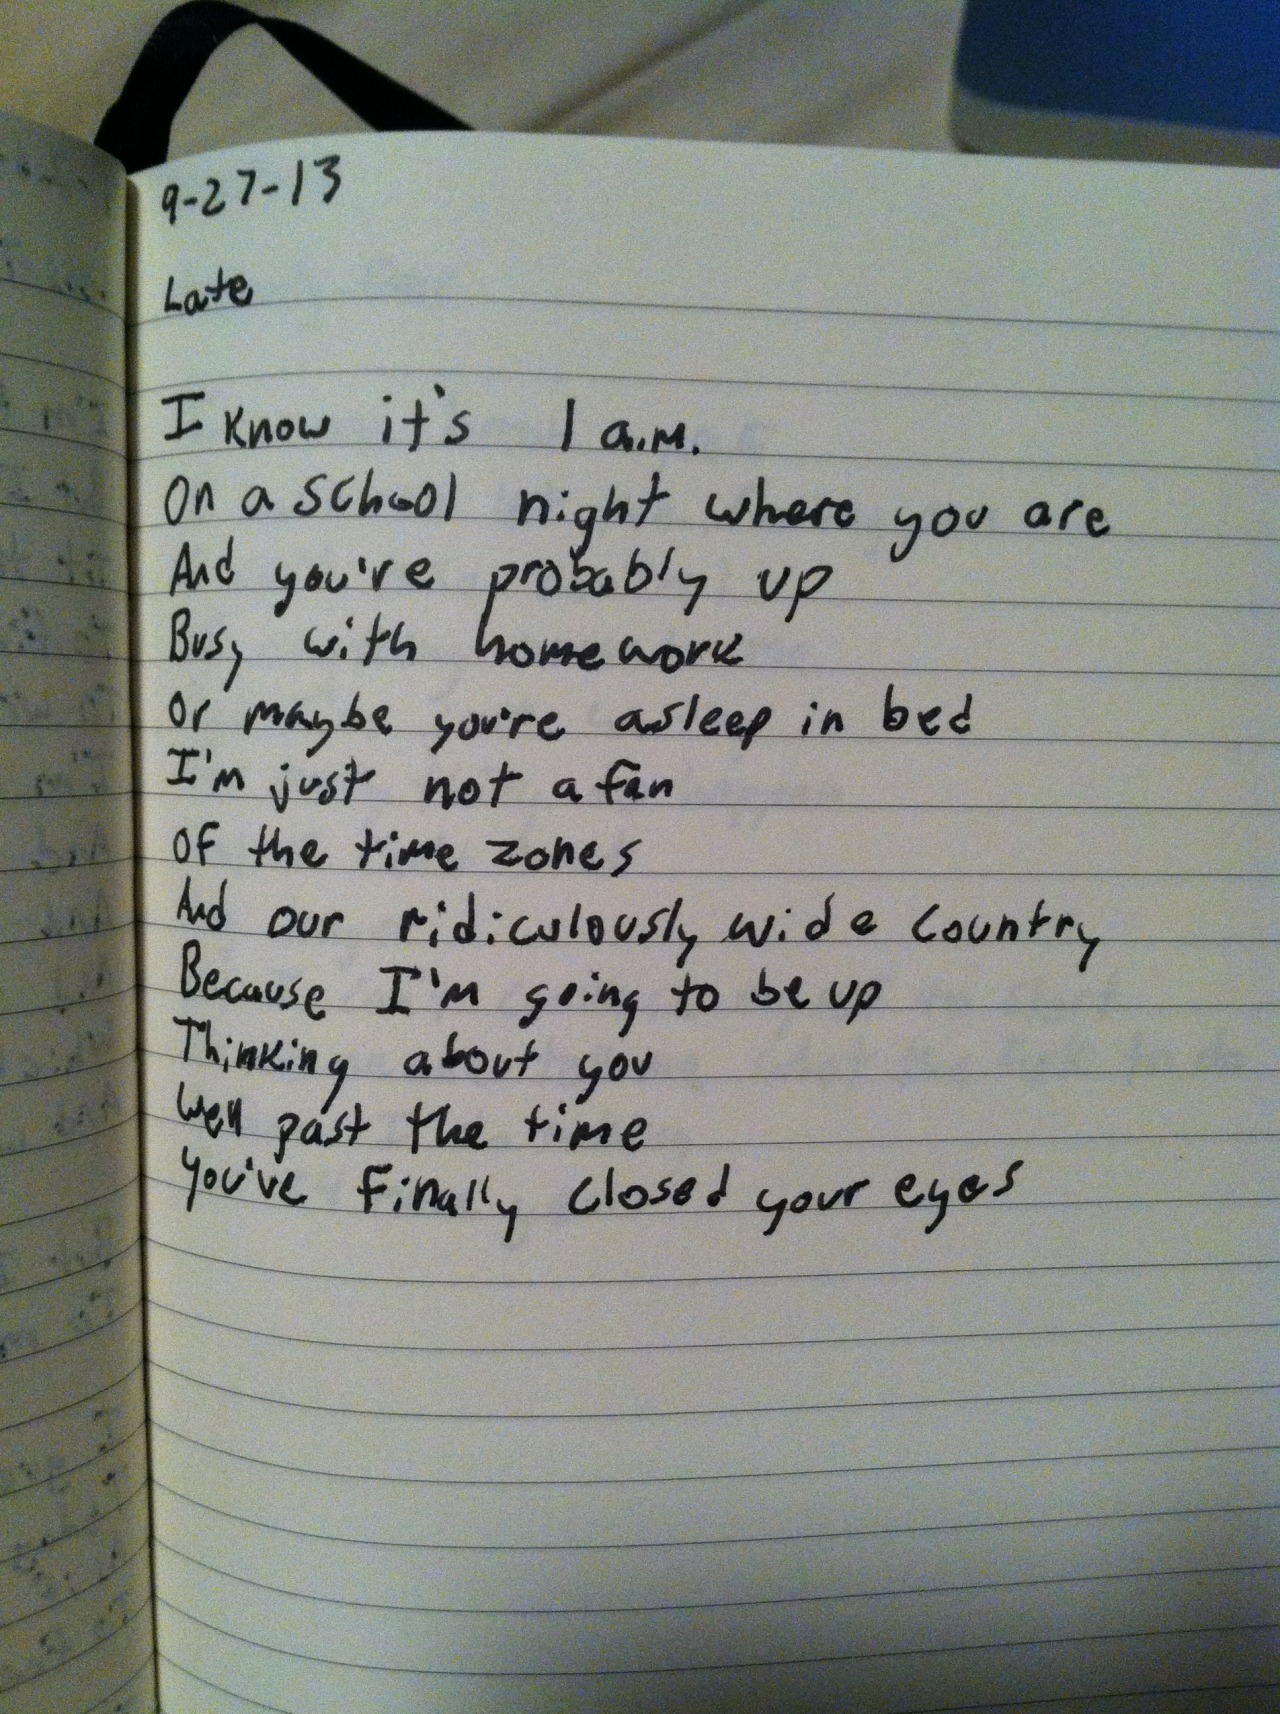 9-27-13
Late
I know it's 1 a.m.
On a school night where you are
And you're probably up
Busy with homework
Or maybe you're asleep in bed
I'm just not a fan
Of the time zones
And our ridiculously wide country
Because I'm going to be up
Thinking about you
Well past the time
You've finally closed your eyes